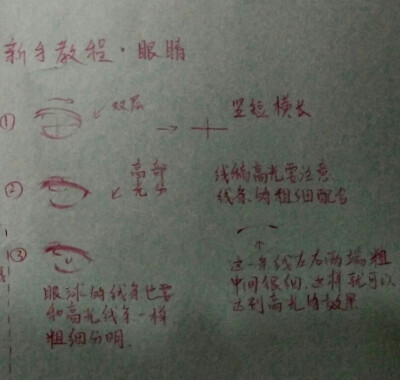 新手教程·眼睛
① 双层 → 竖短横长
② 高部
光分
线稿高光要注意
线条的粗细配合
③
这一条线左右两端粗
中间很细，这样就可以
达到高光的效果
眼球的线条也要
和高光线条一样
粗细分明.